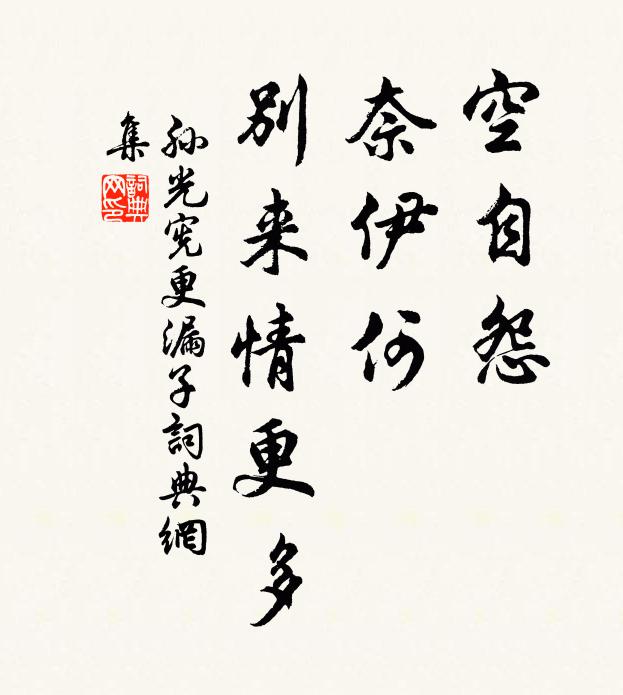 空自怨
奈伊何
別来情更多
孙光宪更漏子詞典網
集
詞典
网印